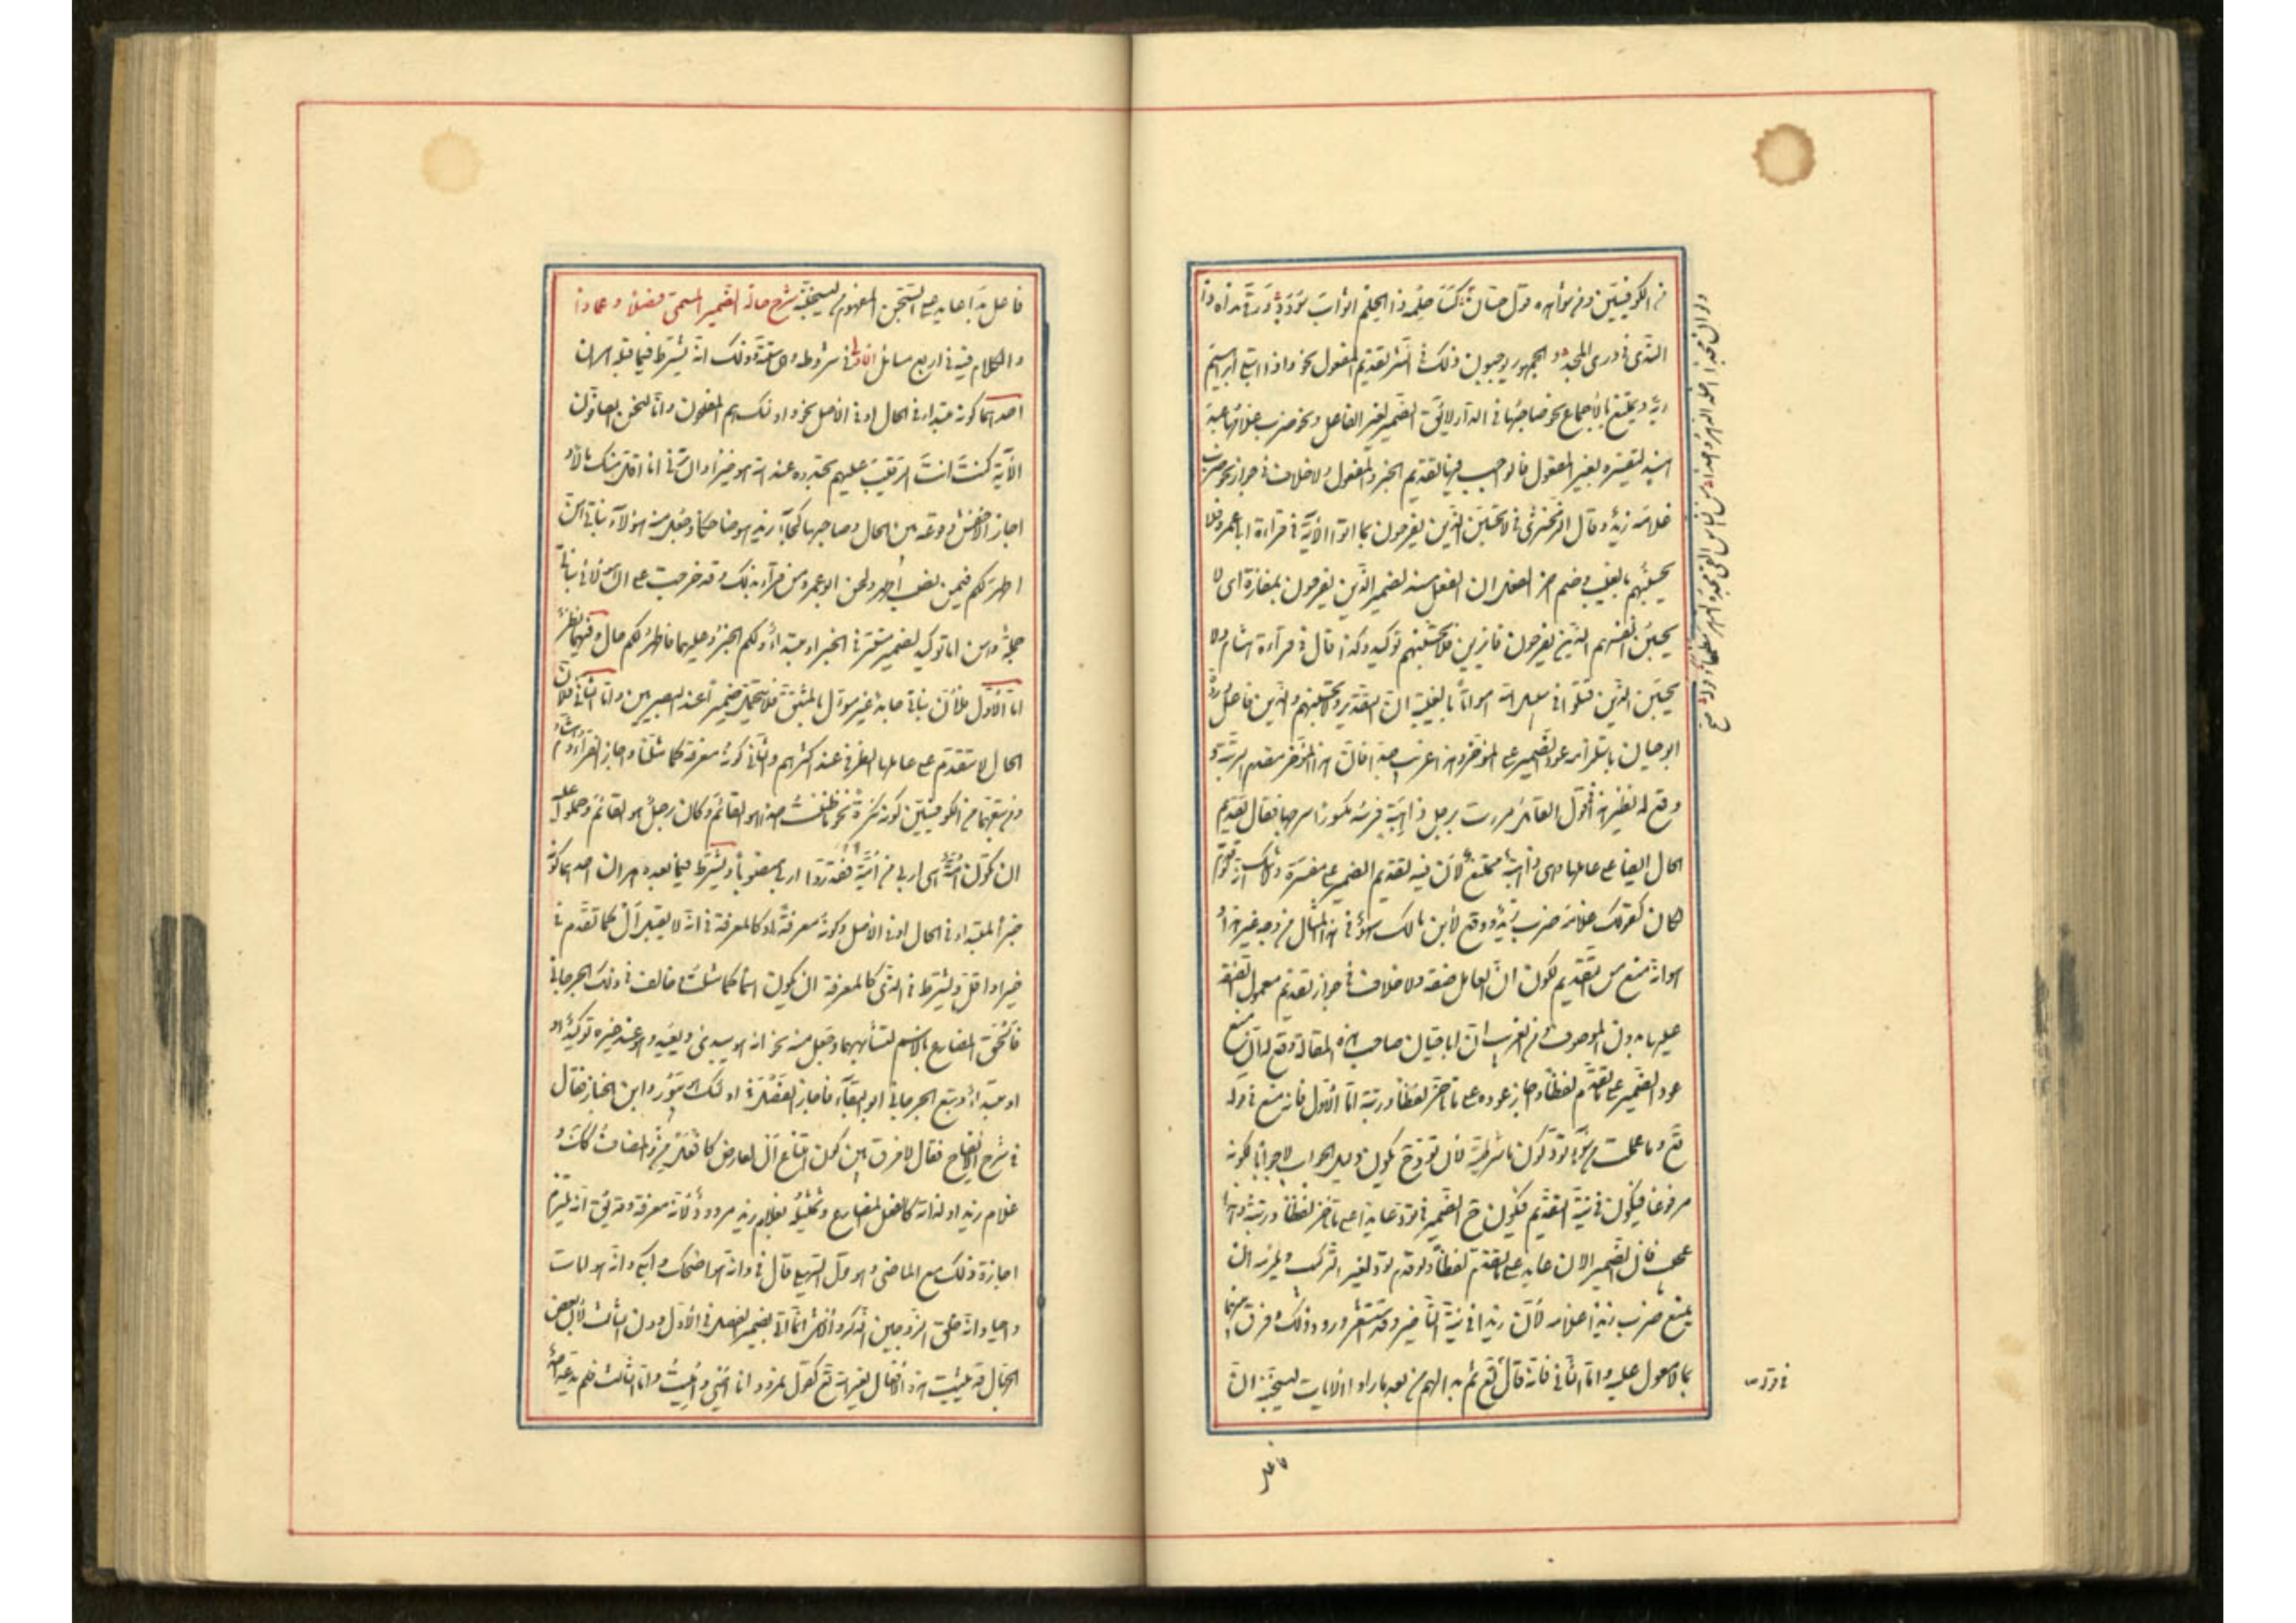 من الكوفيين ومن شواهده قول حسان كسا حلمه ذا الحلم اثواب سؤدد ورقى نداه ذا
الندى في ذرى المجد والجمهور يوجبون ذلك في النثر تقديم المفعول نحو واذ ابتلى ابراهيم
ربه ويمتنع بالاجماع نحو صاحبها في الدار لاتصال الضمير بغير الفاعل ونحو ضرب غلامها عبد
هند لتفسيره بغير المفعول فالواجب فيهما تقديم الخبر والمفعول ولا خلاف في جواز نحو ضرب
غلامه زيد وقال الزمخشري في لا تحسبن الذين يفرحون بما اتوا الآية في قراءة ابي عمرو فلا
يحسبنهم بالغيب وضم اخر الفعل ان الفعل مسند لضمير الذين يفرحون بمفازة اي لا
يحسبن انفسهم الذين يفرحون فائزين فلا يحسبنهم توكيد وكذا قال في قراءة هشام ولا
يحسبن الذين قتلوا في سبيل الله امواتا بالغيبة ان التقدير ولا يحسبنهم والذين فاعل ورده
ابو حيان باستلزامه عود الضمير على المؤخر وهذا غريب جدا فان هذا المؤخر مقدم الرتبة و
وقع له نظير هذا في قول القائل مررت برجل ذاهبة فرسه مكسورا سرجها فقال تقديم
الحال ايضا على عاملها وهي ذاهبة ممتنع لان فيه تقديم الضمير على مفسره ولا شك انه لو قدم
لكان كقولك غلامه ضرب زيد ووقع لابن مالك سهو في هذا المثال من وجه غير هذا و
هو انه منع من التقديم لكون العامل صفة ولا خلاف في جواز تقديم معمول الصفة
عليها بدون الموصوف ومن الغريب ان ابا حيان صاحب هذه المقالة وقع له ان منع
عود الضمير على ما تقدم لفظا واجاز عوده على ما تأخر لفظا ورتبة اما الاول فانه منع في قوله
تع وما عملت من سوء تود كون ما شرطية لان تود ح يكون دليل الجواب لا جوابا لكونه
مرفوعا فيكون في نية التقديم فيكون ح الضمير في تود عائدا على ما تأخر لفظا ورتبة وهذا
عجب فان الضمير الان عايد على ما تقدم لفظا ولو قدم تود لغير التركيب ويلزمه ان
يمنع ضرب زيدا غلامه لان زيدا في نية التأخير وقد استشعر ورود ذلك وفرق بينهما
بما لا معول عليه واما الثاني فانه قال في قوله تع ثم بدا لهم من بعد ما راوا الايات ليسجننه ان
فاعل
فاعل بدا عايد على السجن المفهوم من ليسجننه شرح حال الضمير المسمى فصلا وعمادا
والكلام فيه في اربع مسائل الاولى في شروطه وهي ستة وذلك انه يشترط فيما قبله امران
احدهما كونه مبتدا في الحال او في الاصل نحو واولئك هم المفلحون وانا لنحن الصافون
الآية كنت انت الرقيب عليهم تجدوه عند الله هو خيرا وان ترني انا اقل منك مالا و
اجاز الاخفش وقوعه بين الحال وصاحبها كجاء زيد هو ضاحكا وجعل منه هؤلاء بناتي هن
اطهر لكم فيمن نصب اطهر ولحن ابو عمرو من قرأ بذلك وقد خرجت على ان هؤلاء بناتي
جملة وهن اما توكيد لضمير مستتر في الخبر او مبتدا ولكم الخبر وعليهما فاطهر لكم حال وفيهما نظر
اما الاول فلان بناتي جامد غير مؤول بالمشتق فلا يتحمل ضميرا عند البصريين واما الثاني فلان
الحال لا تتقدم على عاملها الظرفي عند اكثرهم والثاني كونه معرفة كما مثلنا واجاز الفراء وهشام
ومن تبعهما من الكوفيين كونه نكرة نحو ما ظننت احدا هو القائم وكان رجل هو القائم وحملوا عليه
ان تكون امة هي اربى من امة فقدروا اربى منصوبا ويشترط فيما بعده امران احدهما كونه
خبرا لمبتدا في الحال او في الاصل وكونه معرفة او كالمعرفة في انه لا يقبل ال كما تقدم في
خيرا واقل ويشترط في الذي كالمعرفة ان يكون اسما كما مثلنا وخالف في ذلك الجرجاني
فالحق المضارع بالاسم لتشابههما وجعل منه نحو انه هو يبدئ ويعيد وهو عند غيره توكيد او
او مبتدا وتبع الجرجاني ابو البقاء فاجاز الفصل في ومكر اولئك هو يبور وابن الخباز فقال
في شرح الايضاح فقال لا فرق بين كون امتناع ال لعارض كافعل من والمضاف كمثلك و
غلام زيد او لذاته كالفعل المضارع وتمثيله بغلام زيد مردود لانه معرفة وقد يق انه يلزم
اجازة ذلك مع الماضي وهو قول السهيلي قال في وانه هو اضحك وابكى وانه هو امات
واحيا وانه خلق الزوجين الذكر والانثى انما اتي بضمير الفصل في الاول دون الثالث لان بعض
الجهال قد يثبت هذه الافعال لغير الله تع كقول نمرود انا احيي واميت واما الثالث فلم يدعه احد